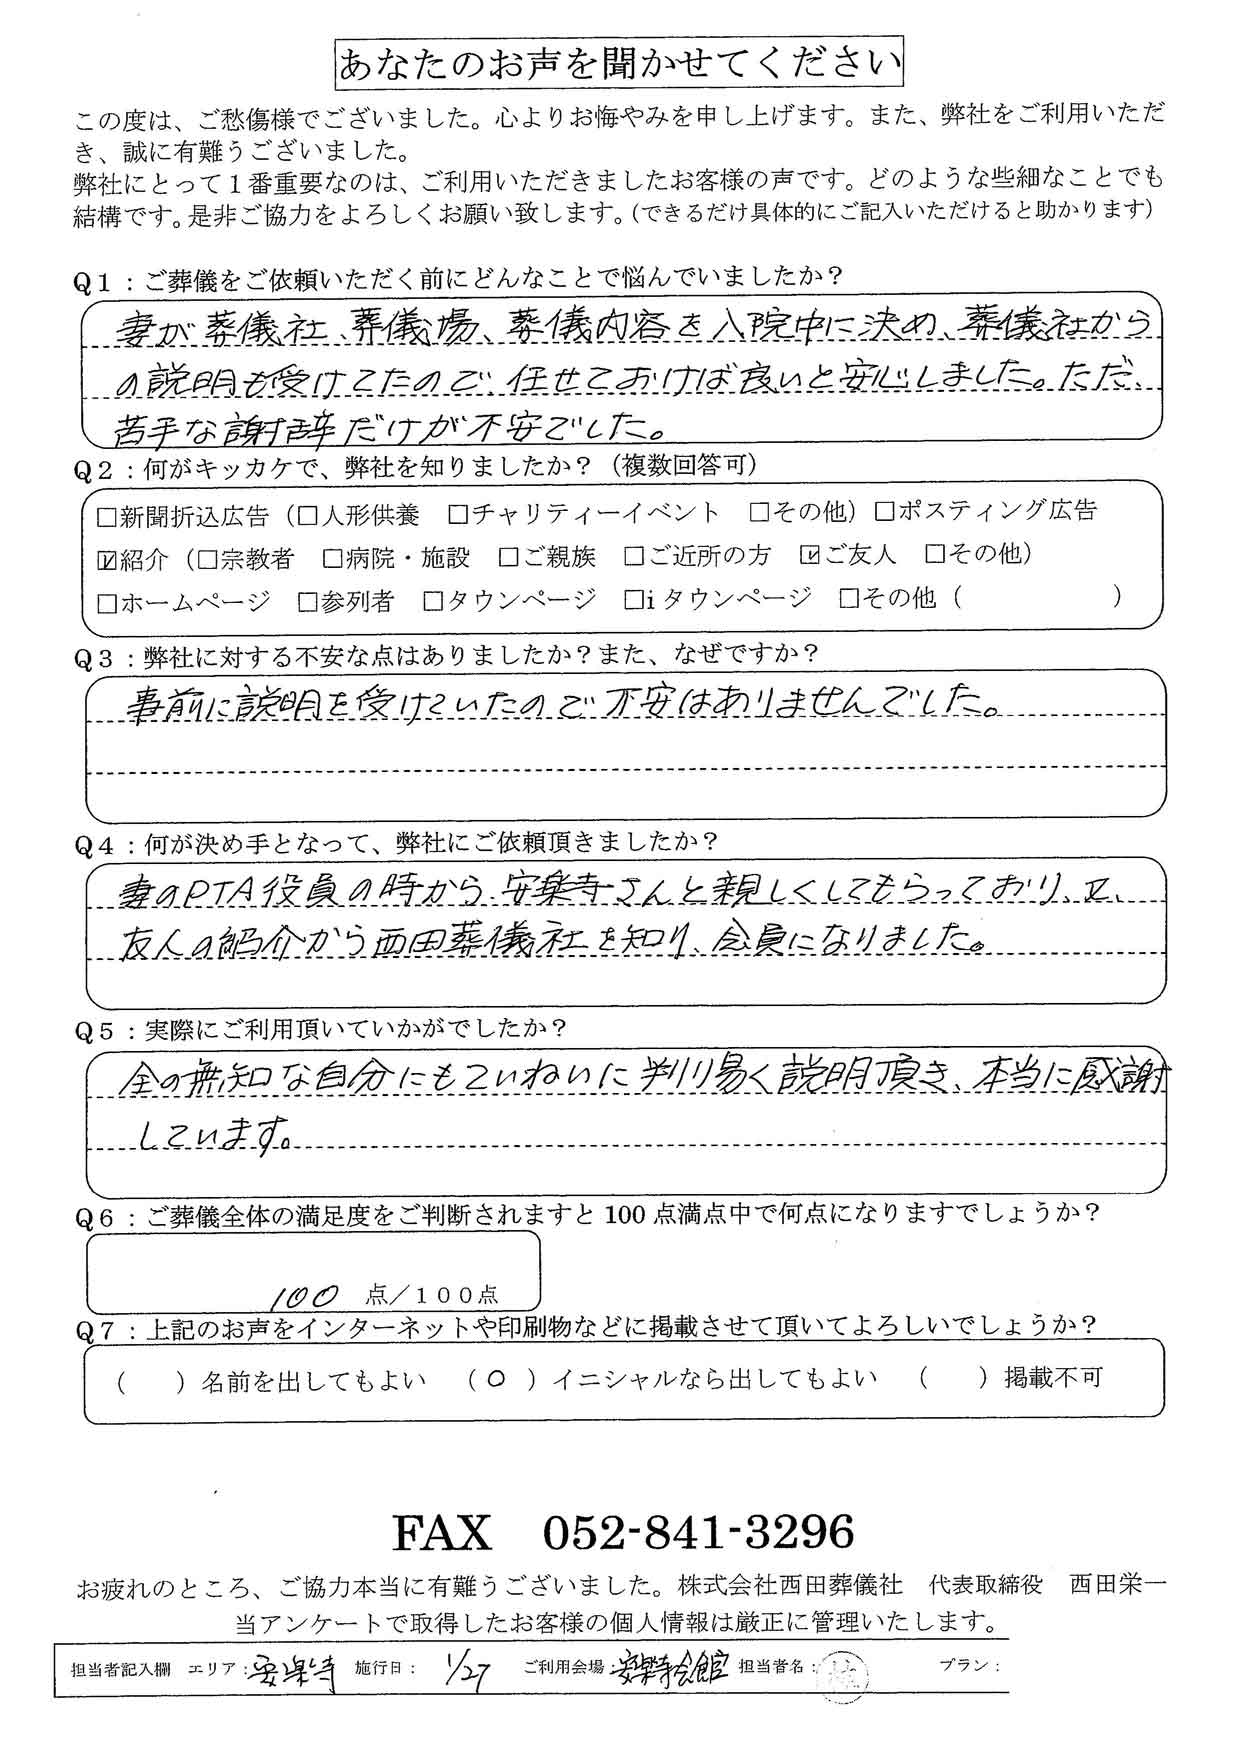 あなたのお声を聞かせてください
この度は、ご愁傷様でございました。心よりお悔やみを申し上げます。また、弊社をご利用いただ
き、誠に有難うございました。
弊社にとって１番重要なのは、ご利用いただきましたお客様の声です。どのような些細なことでも
結構です。是非ご協力をよろしくお願い致します。（できるだけ具体的にご記入いただけると助かります）
Q１：ご葬儀をご依頼いただく前にどんなことで悩んでいましたか？
妻が葬儀社、葬儀場、葬儀内容を入院中に決め、葬儀社から
の説明も受けてたので、任せておけば良いと安心しました。ただ、
苦手な謝辞だけが不安でした。
Q２：何がキッカケで、弊社を知りましたか？（複数回答可）
□新聞折込広告（□人形供養　□チャリティーイベント　□その他）□ポスティング広告
☑紹介（□宗教者　□病院・施設　□ご親族　□ご近所の方　☑ご友人　□その他）
□ホームページ　□参列者　□タウンページ　□iタウンページ　□その他（　　　　　　）
Q３：弊社に対する不安な点はありましたか？また、なぜですか？
事前に説明を受けていたので不安はありませんでした。
Q４：何が決め手となって、弊社にご依頼頂きましたか？
妻のPTA役員の時から、安楽寺さんと親しくしてもらっており、又、
友人の紹介から西田葬儀社を知り、会員になりました。
Q５：実際にご利用頂いていかがでしたか？
全の無知な自分にもていねいに判り易く説明頂き、本当に感謝
しています。
Q６：ご葬儀全体の満足度をご判断されますと100点満点中で何点になりますでしょうか？
100 点／１００点
Q７：上記のお声をインターネットや印刷物などに掲載させて頂いてよろしいでしょうか？
（　　）名前を出してもよい　（○）イニシャルなら出してもよい　（　　）掲載不可
FAX　052-841-3296
お疲れのところ、ご協力本当に有難うございました。株式会社西田葬儀社　代表取締役　西田栄一
当アンケートで取得したお客様の個人情報は厳正に管理いたします。
担当者記入欄　エリア：安楽寺　施行日：1/27　ご利用会場：安楽寺会館　担当者名：　プラン：